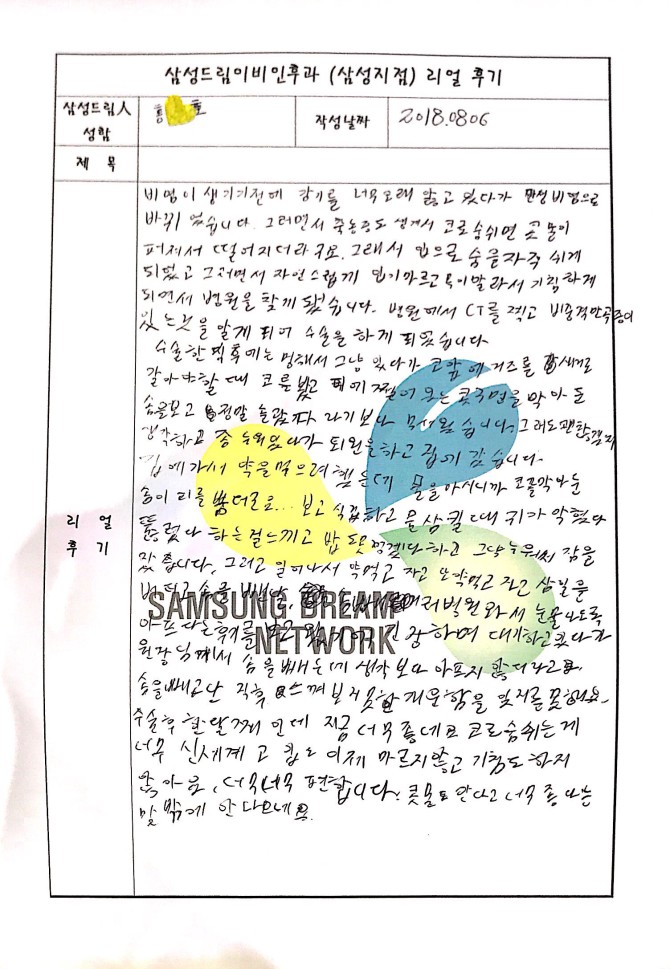 삼성드림이비인후과 (삼성지점) 리얼 후기
삼성드림人 성함
홍 호
작성날짜
2018.08.06
제 목
리 얼 후 기
비염이 생기기전에 감기를 너무오래 앓고 있다가 만성비염으로
바뀌 었습니다. 그러면서 축농증도 생겨서 코로숨쉬면 콧물이
퍼져서 떨어지더라구요. 그래서 입으로 숨을자주 쉬게
되었고 그러면서 자연스럽게 입가마르고 목이말라서 기침하게
되면서 병원을 찾게 됐습니다. 병원에서 CT를 찍고 비중격만곡증이
있는것을 알게 되어 수술을 하게 되었습니다.
수술한 직후에는 멍해서 그냥 있다가 코앞에 거즈를 새로
갈아야할 때 코를 보고 피에 쩔어 콧구멍을 막아 둔
솜을보고 정말 놀랍다 라기보다 무서웠습니다. 그래도괜찮겠지
생각하고 좀 누워있다가 퇴원을하고 집에 갔습니다.
집에가서 약을먹으려 했는데 물을마시니까 코를막아둔
솜이 피를 보고 식겁하고 물삼킬때 귀가 막혔다
뚫렸다 하는걸느끼고 밥 못먹겠다하고 그냥누워서 잠을
잤습니다. 그리고 일어나서 약먹고 자고 또약먹고 자고 삼일을
버티고 솜을 빼러 병원와서 눈물나도록
아프다는후기를 보고 긴장하며 대기하고있다가
원장님께서 솜을빼는데 생각보다 아프지 않더라고요.
솜을빼고난 직후 느껴보지못한 개운함을 잊지를못해요.
수술후 한달째 인데 지금 너무좋네요 코로숨쉬는게
너무 신세계고 입도 이제 마르지않고 기침도 하지
않아요. 너무너무 편합니다. 콧물도 안나고 너무 좋다는
말 밖에 안나오네요.
SAMSUNG DREAM
NETWORK